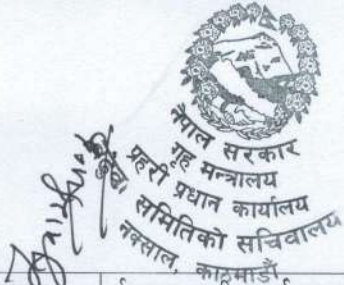 नेपाल सरकार
गृह मन्त्रालय
प्रहरी प्रधान कार्यालय
समितिको सचिवालय
नक्साल, काठमाडौं